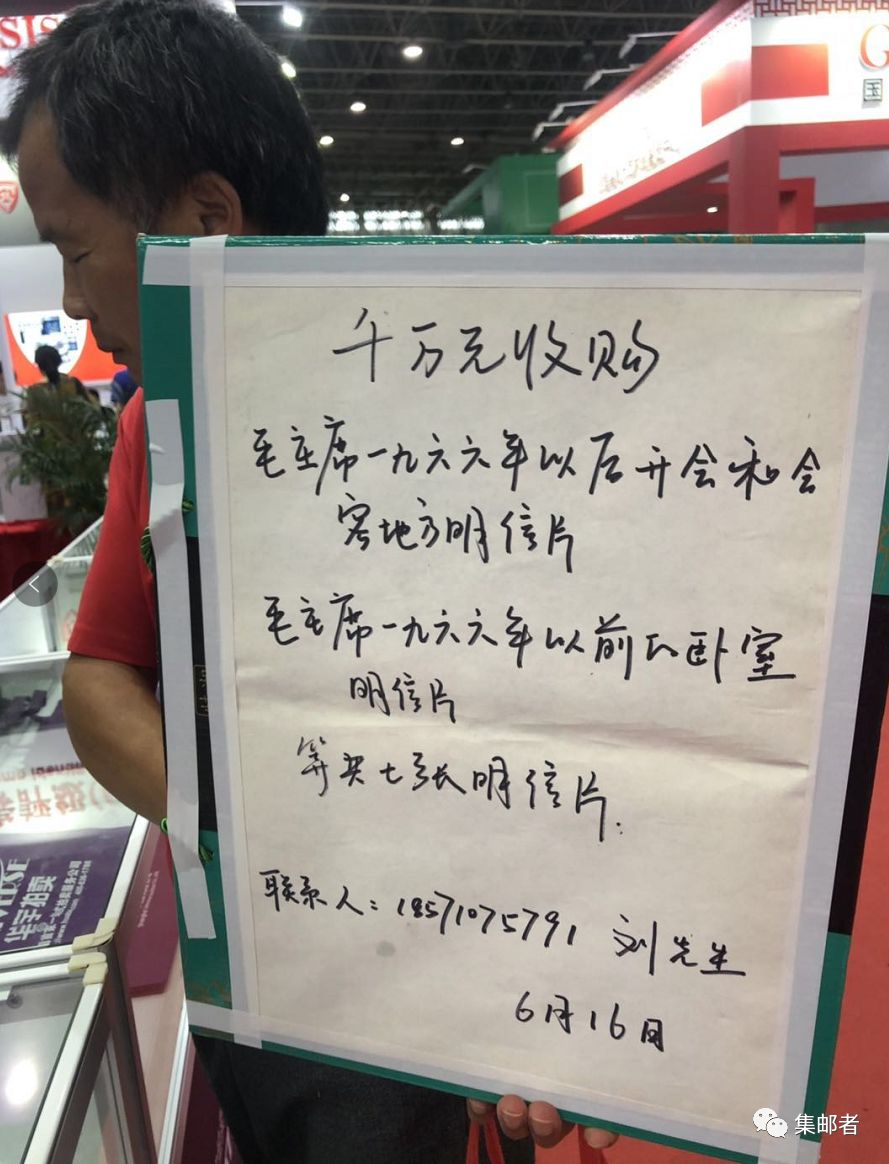 千万元收购
毛主席一九六六年以后开会和会
客地方明信片
毛主席一九六六年以前的卧室
明信片
等共七张明信片.
联系人：18571075791 刘先生
6月16日
SIS
G
国
华宇拍卖
集邮者